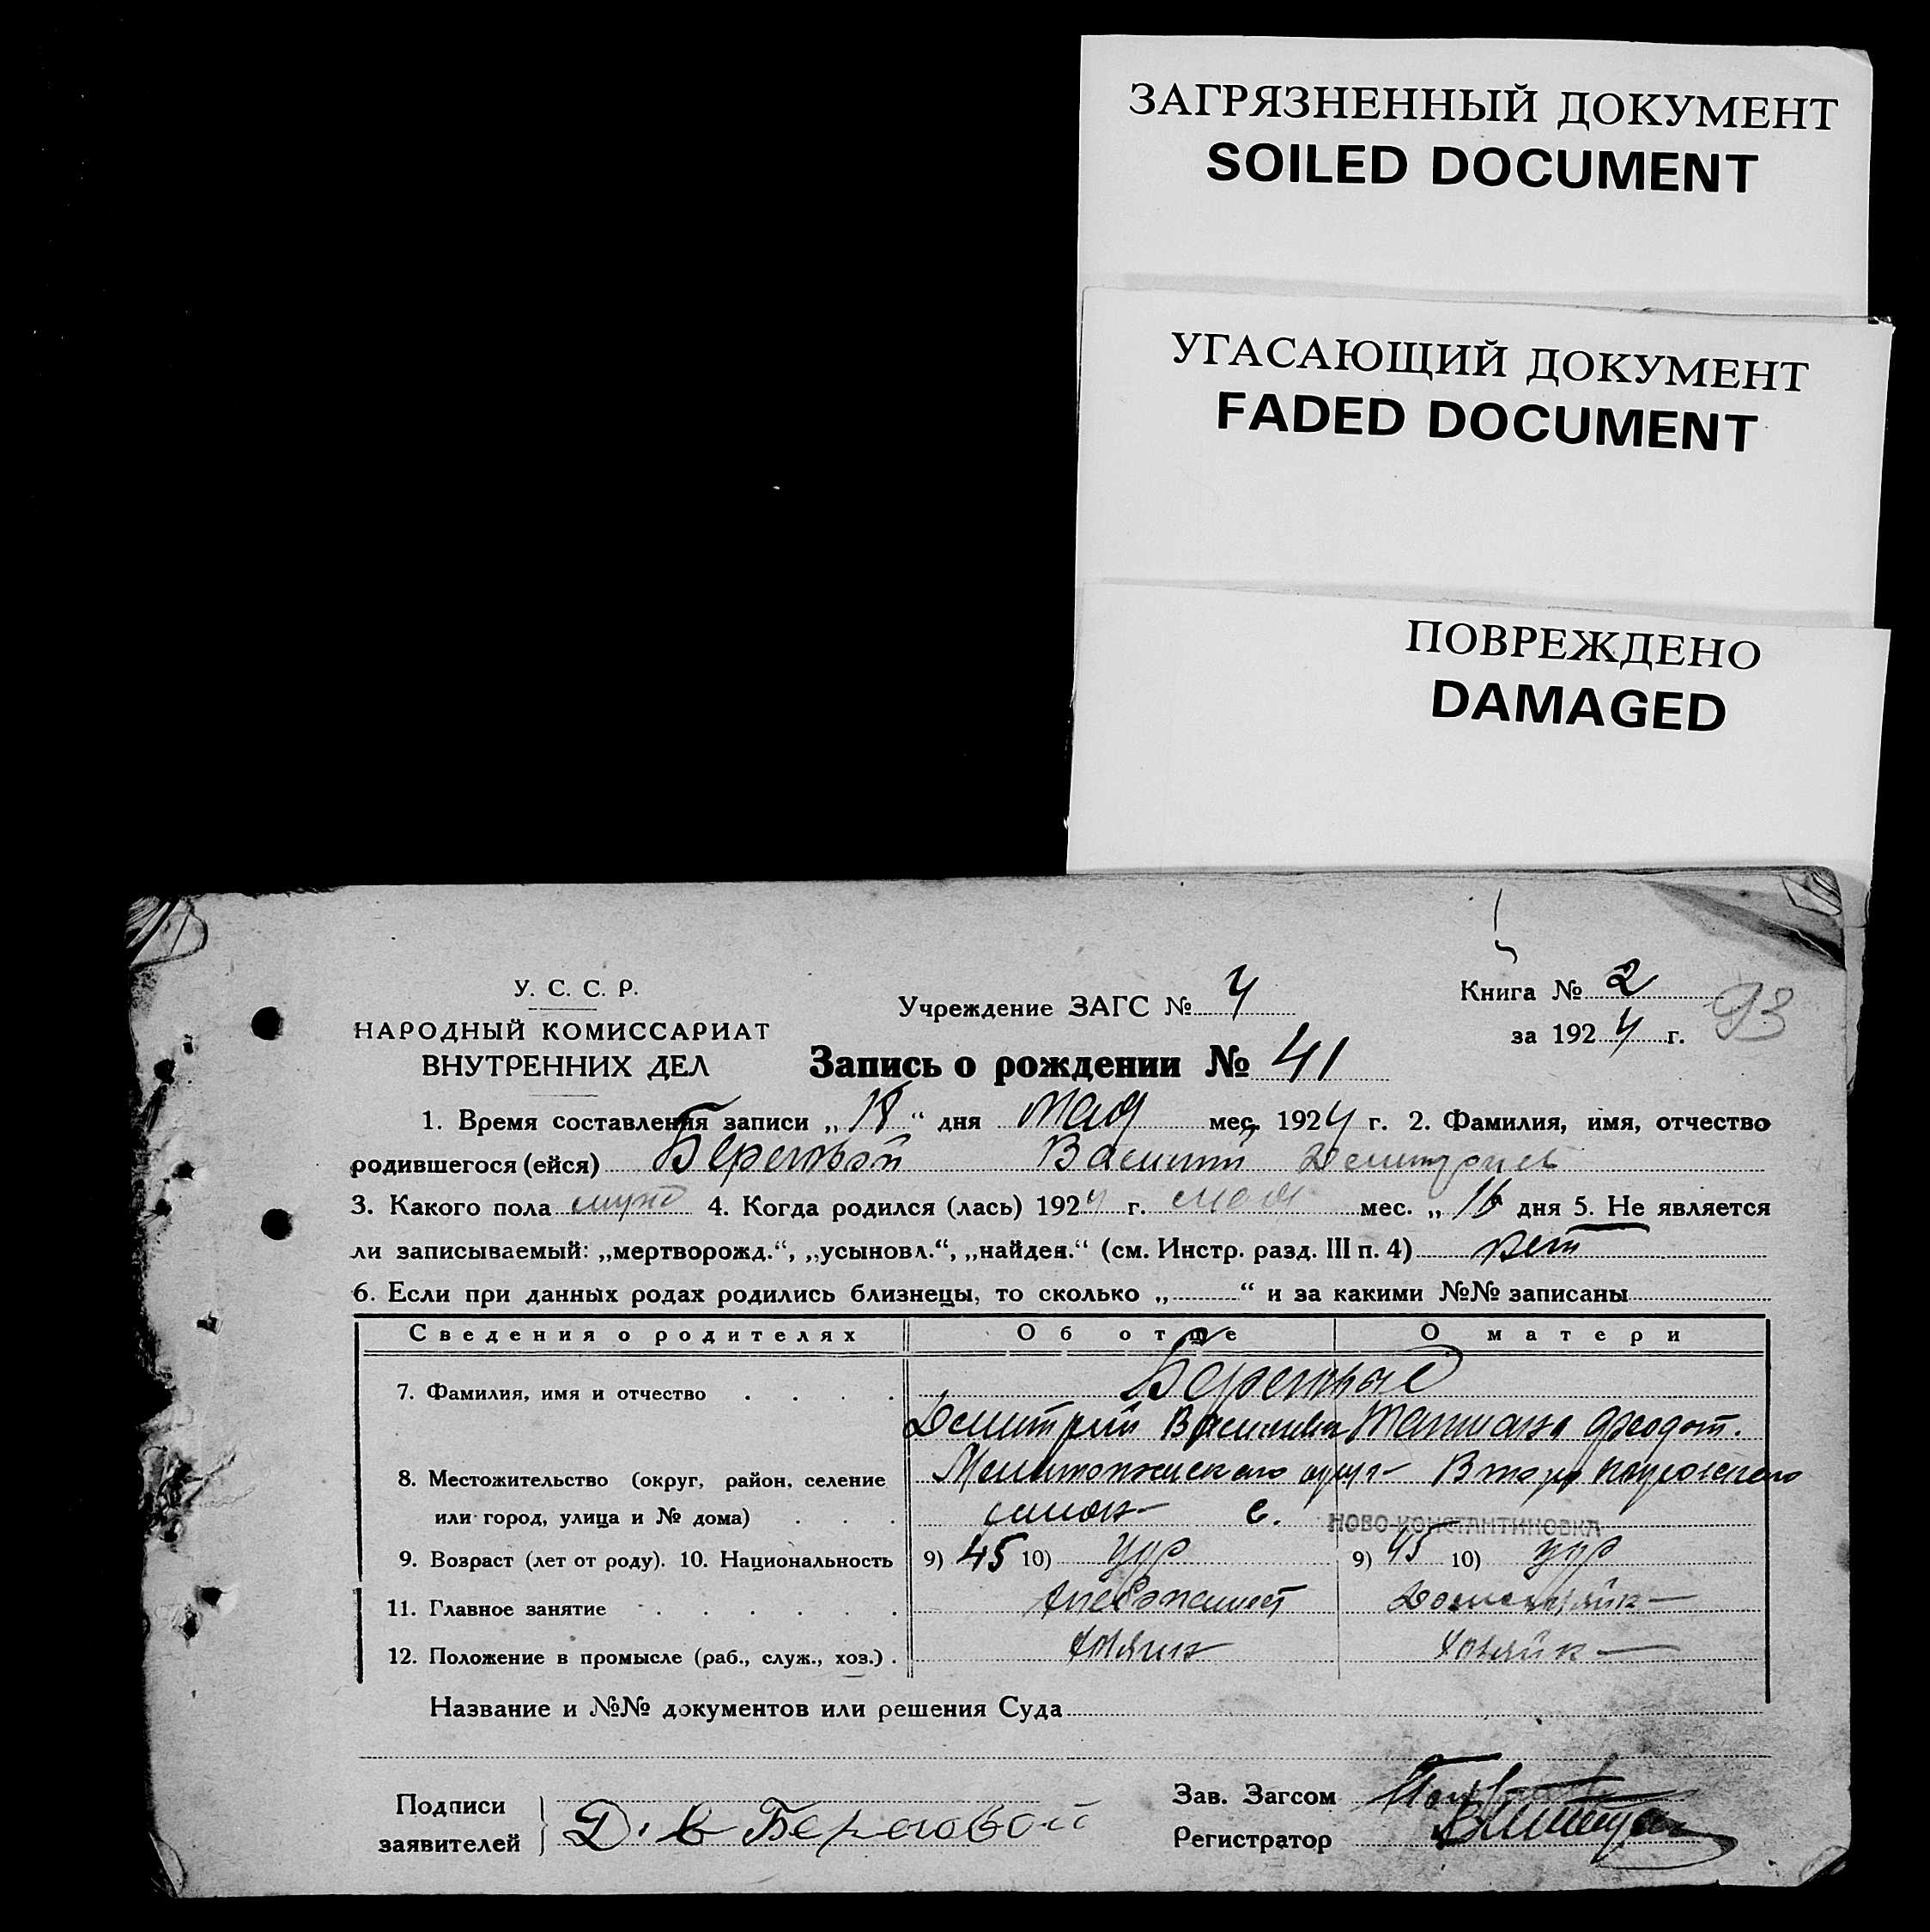 ЗАГРЯЗНЕННЫЙ ДОКУМЕНТ
SOILED DOCUMENT
УГАСАЮЩИЙ ДОКУМЕНТ
FADED DOCUMENT
ПОВРЕЖДЕНО
DAMAGED
У. С. С. Р.
НАРОДНЫЙ КОМИССАРИАТ
ВНУТРЕННИХ ДЕЛ
Учреждение ЗАГС № 4
Книга № 2
за 1924 г.
93
Запись о рождении № 41
1. Время составления записи „ “ дня мая мес. 1924 г. 2. Фамилия, имя, отчество
родившегося (ейся) Береговой Василий Дмитриев
3. Какого пола муж 4. Когда родился (лась) 1924 г. мая мес. „ 16 дня 5. Не является
ли записываемый: „мертворожд.“, „усыновл.“, „найден.“ (см. Инстр. разд. III п. 4) нет
6. Если при данных родах родились близнецы, то сколько „ “ и за какими №№ записаны
Сведения о родителях Об отце О матери
7. Фамилия, имя и отчество Береговые
Дмитрий Васильев Татиана Феодот.
8. Местожительство (округ, район, селение Мелитопольского округ
или город, улица и № дома) с. НОВО-КОНСТАНТИНОВКА
9. Возраст (лет от роду). 10. Национальность 9) 45 10) укр 9) 45 10) укр
11. Главное занятие хлебопашест
12. Положение в промысле (раб., служ., хоз.) . хозяин хозяйк
Название и №№ документов или решения Суда
Подписи
заявителей
Д. В Береговой
Зав. Загсом
Регистратор